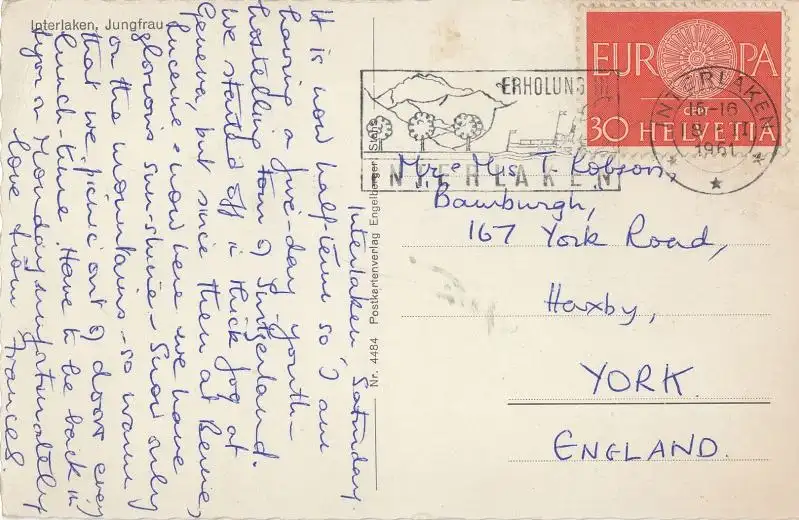 Interlaken, Jungfrau
Interlaken Saturday.
It is now half-term so I am
having a five-day youth-
hostelling tour of Switzerland.
We started off in thick fog at
Geneva, but since then at Berne,
Lucerne & now here we have
glorious sun-shine - Snow only
on the mountains - so warm
that we picnic out of doors every
lunch-time. Have to be back in
Lyon on Monday unfortunately
love from Frances
Nr. 4484 Postkartenverlag Engelberger, Stans
ERHOLUNG
INTERLAKEN
EUROPA
30 HELVETIA
INTERLAKEN
15-16
1961
Mr & Mrs T. Robson,
Bamburgh,
167 York Road,
Haxby,
YORK.
ENGLAND.